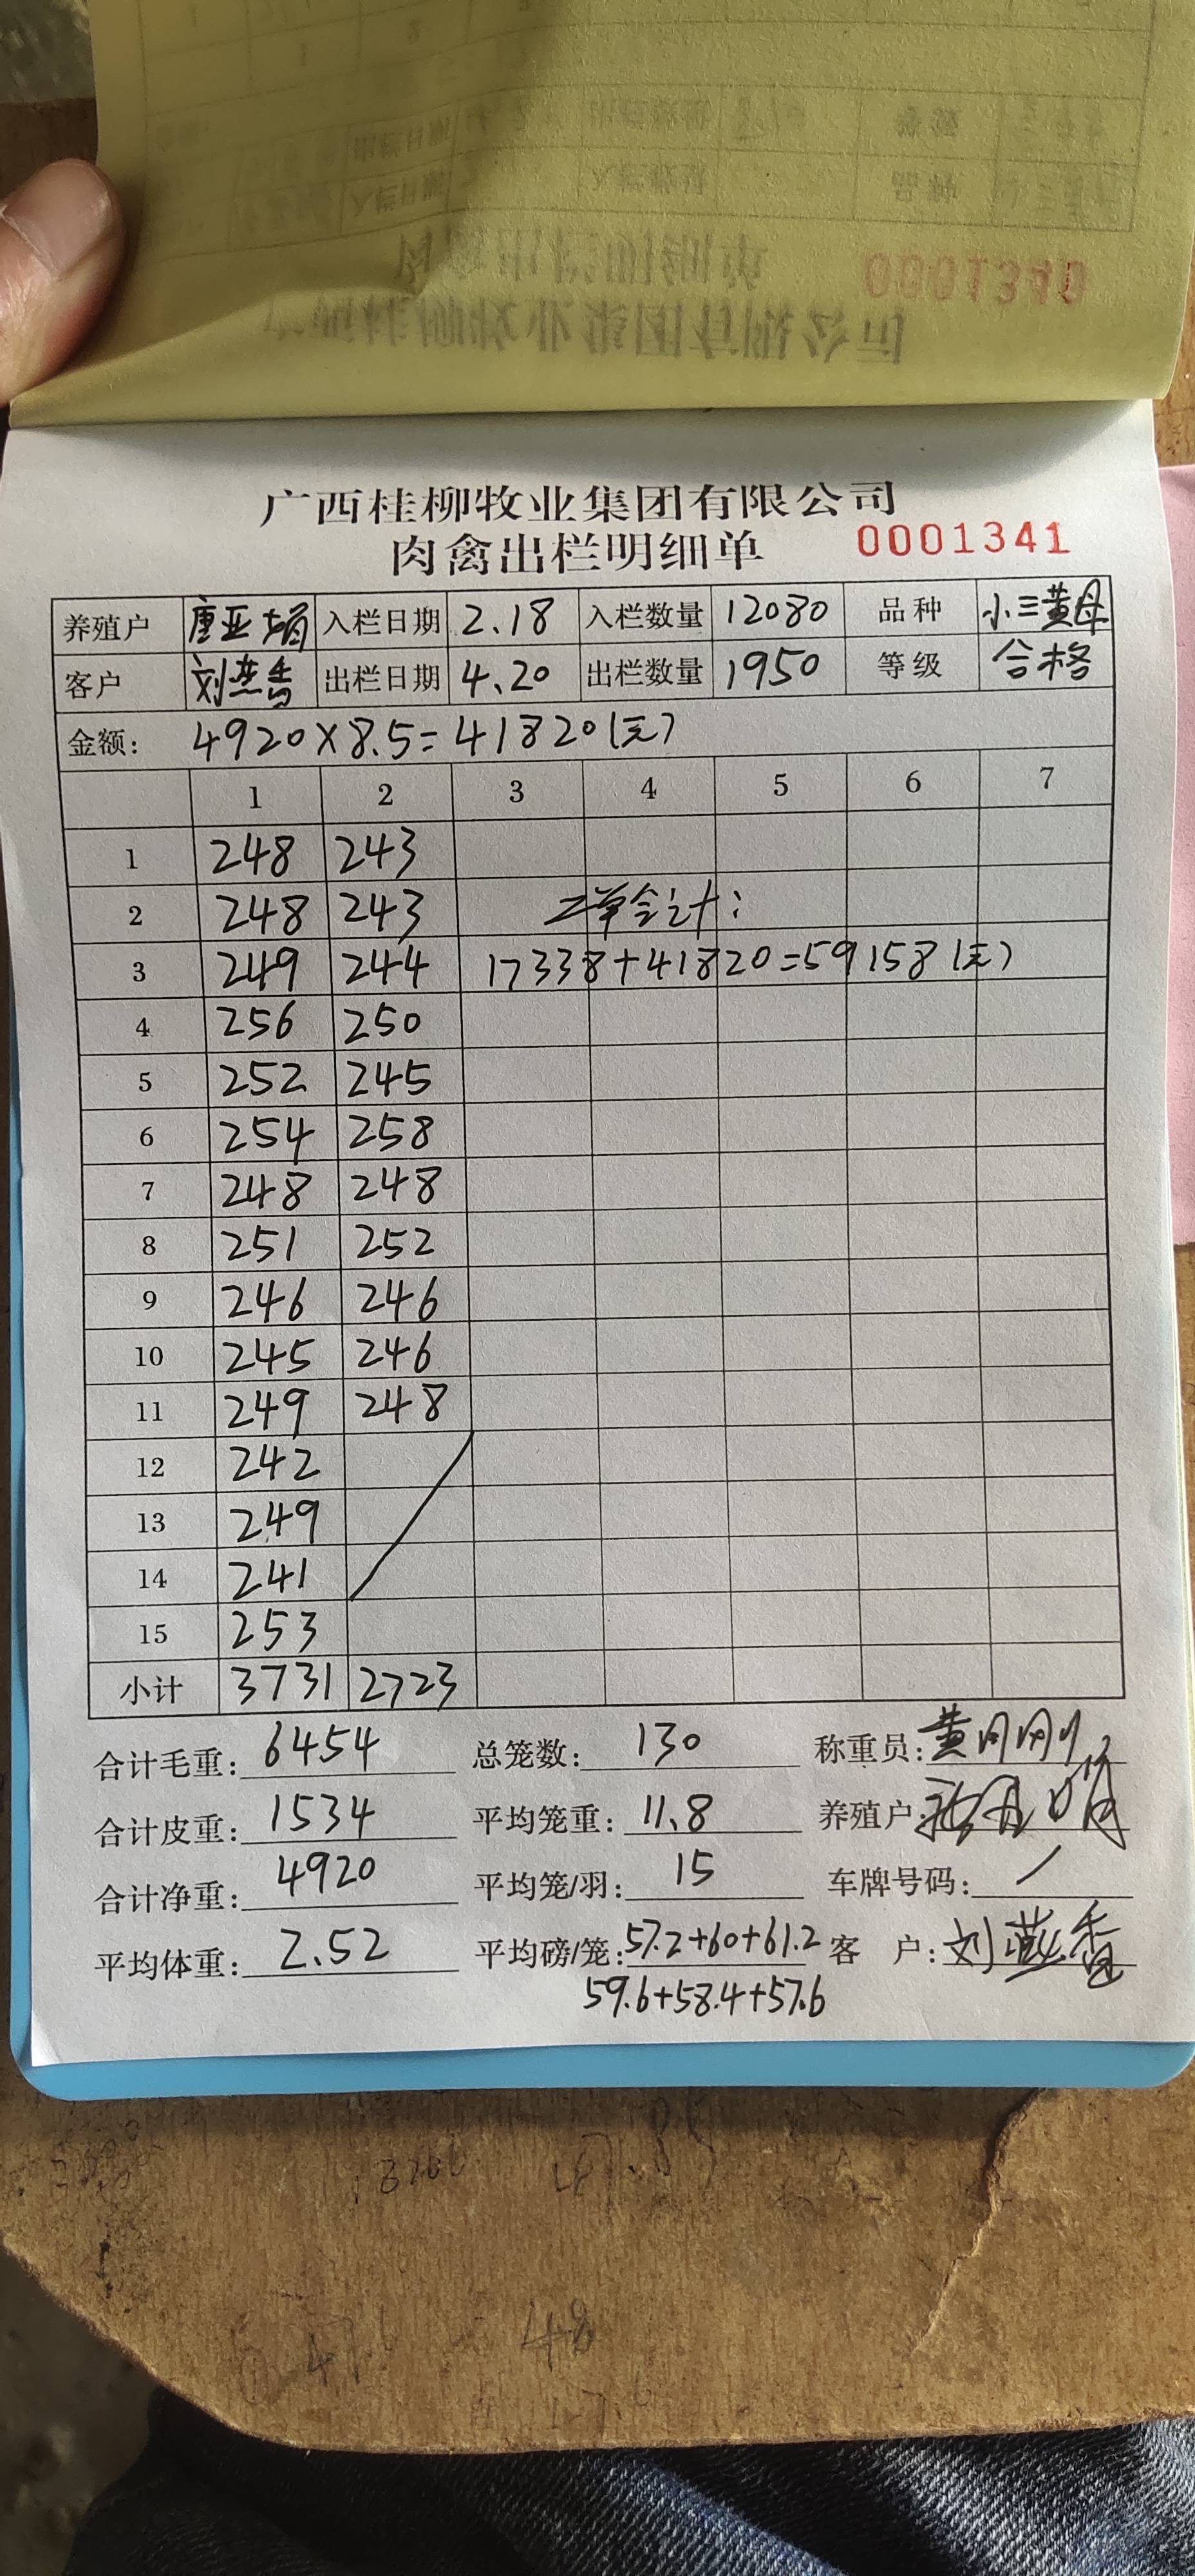 0001340
广西桂柳牧业集团有限公司
肉禽出栏明细单 0001341
养殖户 唐亚娟 入栏日期 2.18 入栏数量 12080 品种 小三黄母
客户 刘燕香 出栏日期 4.20 出栏数量 1950 等级 合格
金额: 4920×8.5=41820(元)
1 2 3 4 5 6 7
1 248 243
2 248 243 二单合计:
3 249 244 17338+41820=59158(元)
4 256 250
5 252 245
6 254 258
7 248 248
8 251 252
9 246 246
10 245 246
11 249 248
12 242
13 249
14 241
15 253
小计 3731 2723
合计毛重: 6454 总笼数: 130 称重员: 黄月刚
合计皮重: 1534 平均笼重: 11.8 养殖户:
合计净重: 4920 平均笼/羽: 15 车牌号码: /
平均体重: 2.52 平均磅/笼: 57.2+60+61.2 客 户: 刘燕香
59.6+58.4+57.6